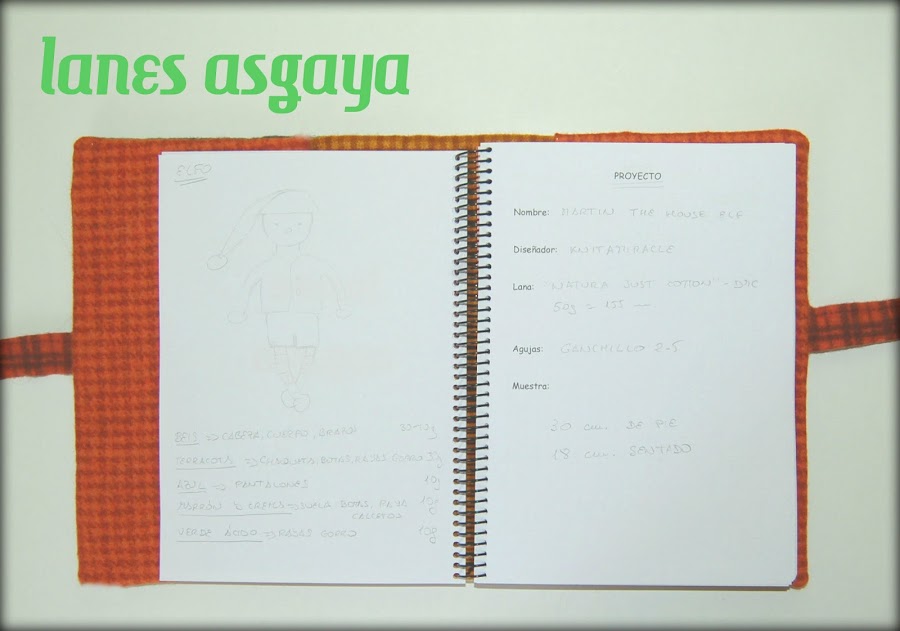 lanes asgaya
ELFO
BEIS → CABEZA, CUERPO, BRAZOS
→ CHAQUETA, BOTAS, RAYAS GORRO
AZUL → PANTALONES 10g
MARRÓN SUELA BOTAS, RAYA 10g
CALCETÍN
VERDE ÁCIDO → RAYAS GORRO 10g
PROYECTO
Nombre: MARTIN THE HOUSE ELF
Diseñador: KNITAMIRACLE
Lana: "NATURA JUST COTTON" - DMC
50g = 155 m
Agujas: GANCHILLO 2-5
Muestra:
30 cm. DE PIE
18 cm. SENTADO